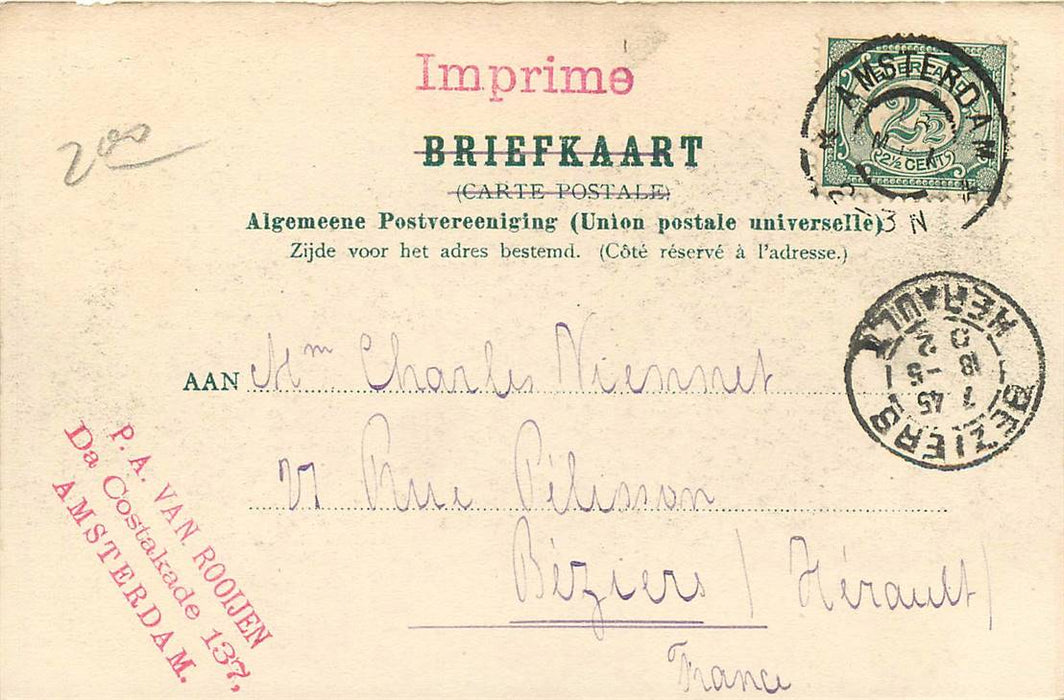 Imprimé
200
BRIEFKAART
(CARTE POSTALE)
Algemeene Postvereeniging (Union postale universelle)
Zijde voor het adres bestemd. (Côté réservé à l'adresse.)
NEDERLAND
2½
2½ CENT
AMSTERDAM
3 N
BEZIERS
HERAULT
7 45
18 -5
02
AAN Mm Charles Viennet
27 Rue Pélisson
Béziers / Hérault /
France
P. A. VAN ROOIJEN
Da Costakade 137,
AMSTERDAM.